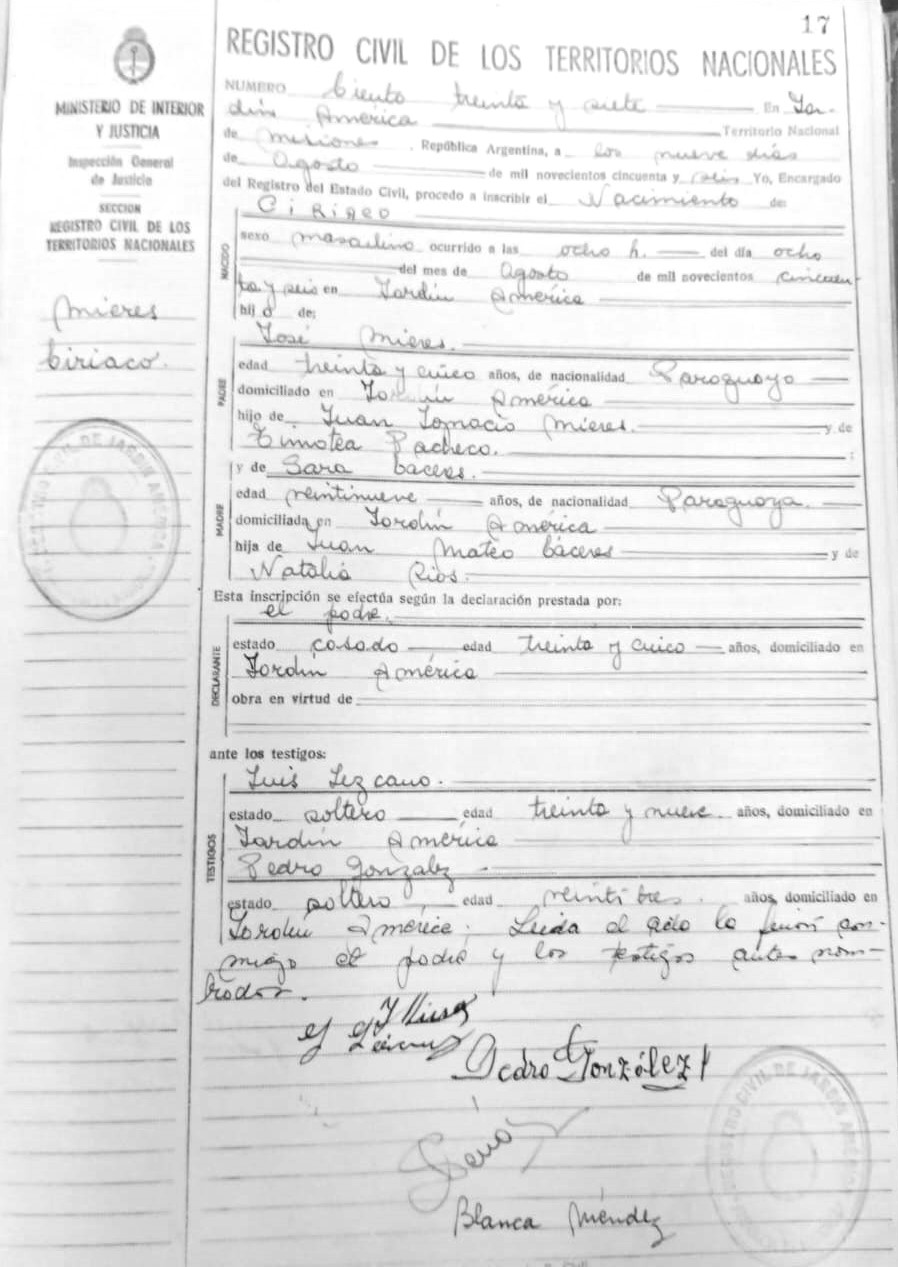 17
REGISTRO CIVIL DE LOS TERRITORIOS NACIONALES
MINISTERIO DE INTERIOR
Y JUSTICIA
Inspección General
de Justicia
SECCION
REGISTRO CIVIL DE LOS
TERRITORIOS NACIONALES
Mieres
Ciriaco.
NUMERO Ciento treinta y siete En Jar-
dín América Territorio Nacional
de Misiones. República Argentina, a los nueve días
de Agosto de mil novecientos cincuenta y seis Yo, Encargado
del Registro del Estado Civil, procedo a inscribir el Nacimiento de:
NACIDO
CIRIACO
sexo masculino ocurrido a las ocho h. del día ocho
del mes de Agosto de mil novecientos cincuen-
ta y seis en Jardín América
hijo de:
José Mieres.
PADRE
edad treinta y cinco años, de nacionalidad Paraguayo
domiciliado en Jardín América
hijo de Juan Ignacio Mieres. y de
Timotea Pacheco. :
y de Sara Cáceres.
MADRE
edad veintinueve años, de nacionalidad Paraguaya.
domiciliada en Jardín América
hija de Juan Mateo Cáceres y de
Natalia Ríos.
Esta inscripción se efectúa según la declaración prestada por:
el padre.
DECLARANTE
estado casado edad treinta y cinco años, domiciliado en
Jardín América
obra en virtud de
ante los testigos:
TESTIGOS
Luis Lezcano.
estado soltero edad treinta y nueve años, domiciliado en
Jardín América
Pedro Gonzalez
estado soltero, edad veintitres. años, domiciliado en
Jardín América. Leída el acta la firman con-
migo el padre y los testigos antes nom-
brados.
Pedro González
Blanca Méndez
REGISTRO CIVIL DE JARDIN AMERICA
REGISTRO CIVIL DE JARDIN AMERICA